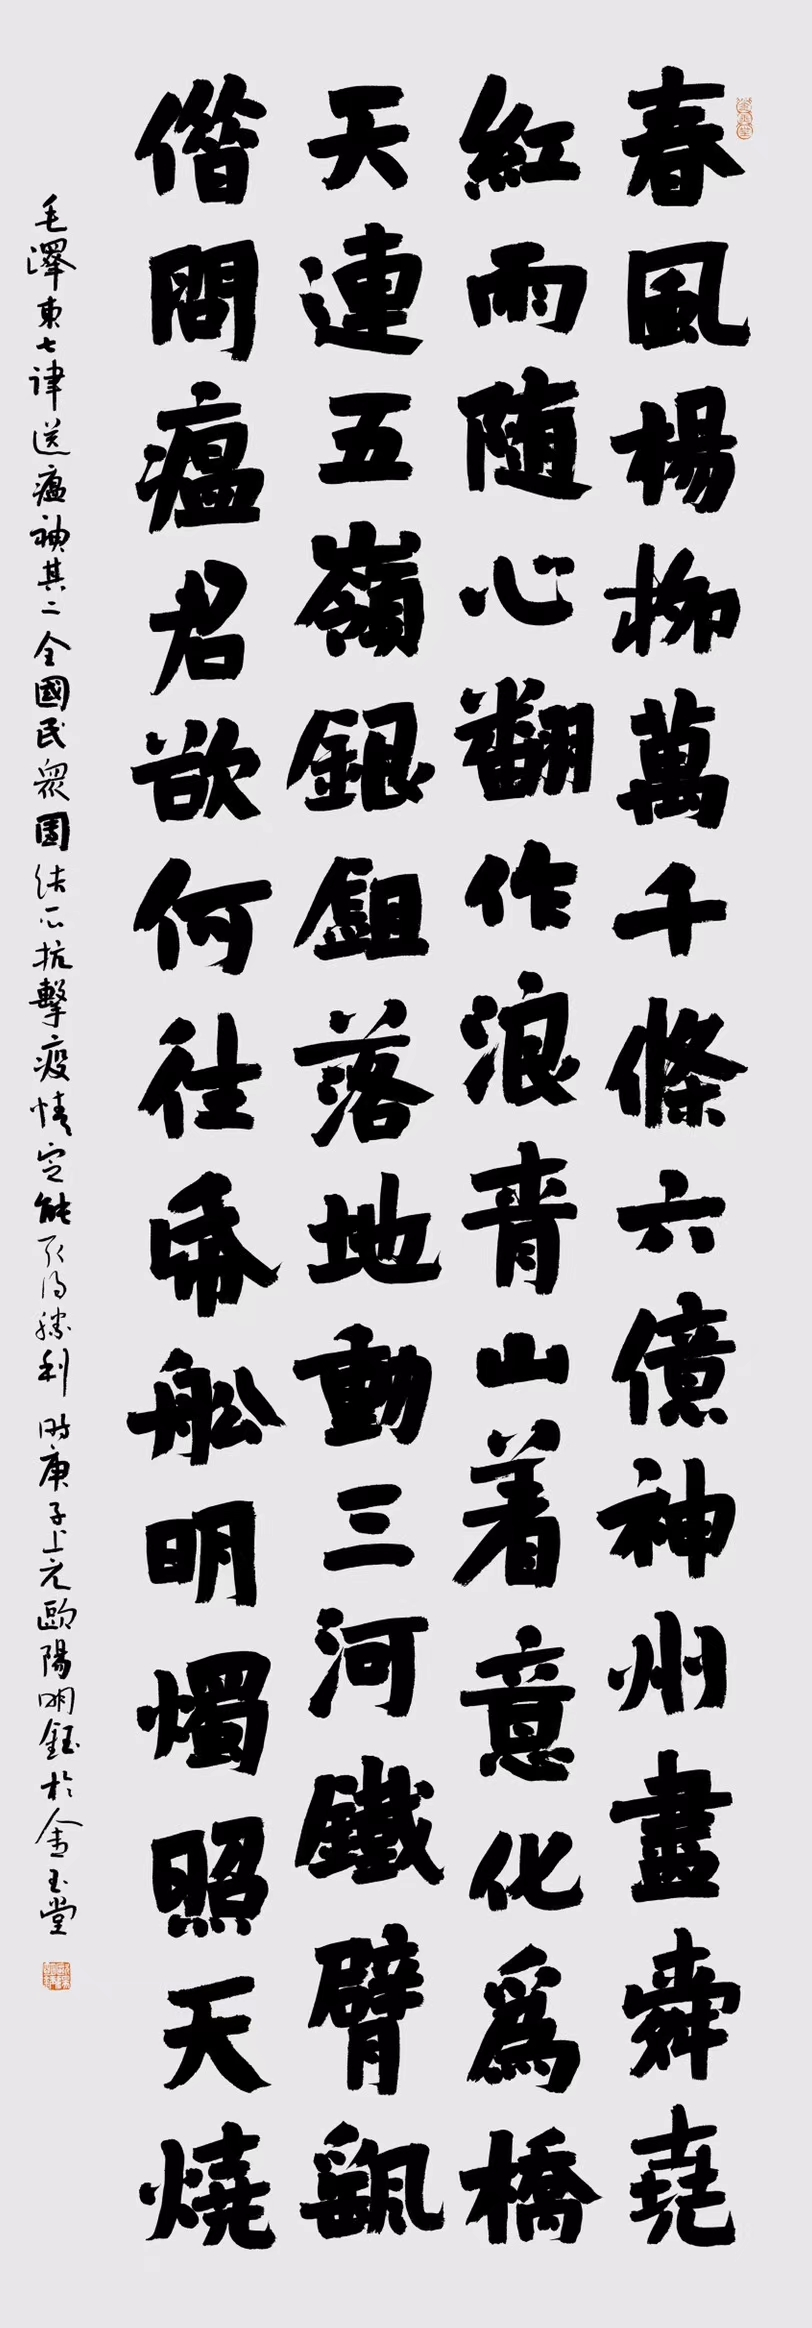 春風楊柳萬千條六億神州盡舜堯
紅雨随心翻作浪青山着意化爲橋
天連五嶺銀鉏落地動三河鐵臂颻
借問瘟君欲何往帋舩明燭照天燒
毛澤東七律送瘟神其二全國民衆團结一心抗擊疫情定能取得勝利 时庚子上元歐陽明鈺於金玉堂